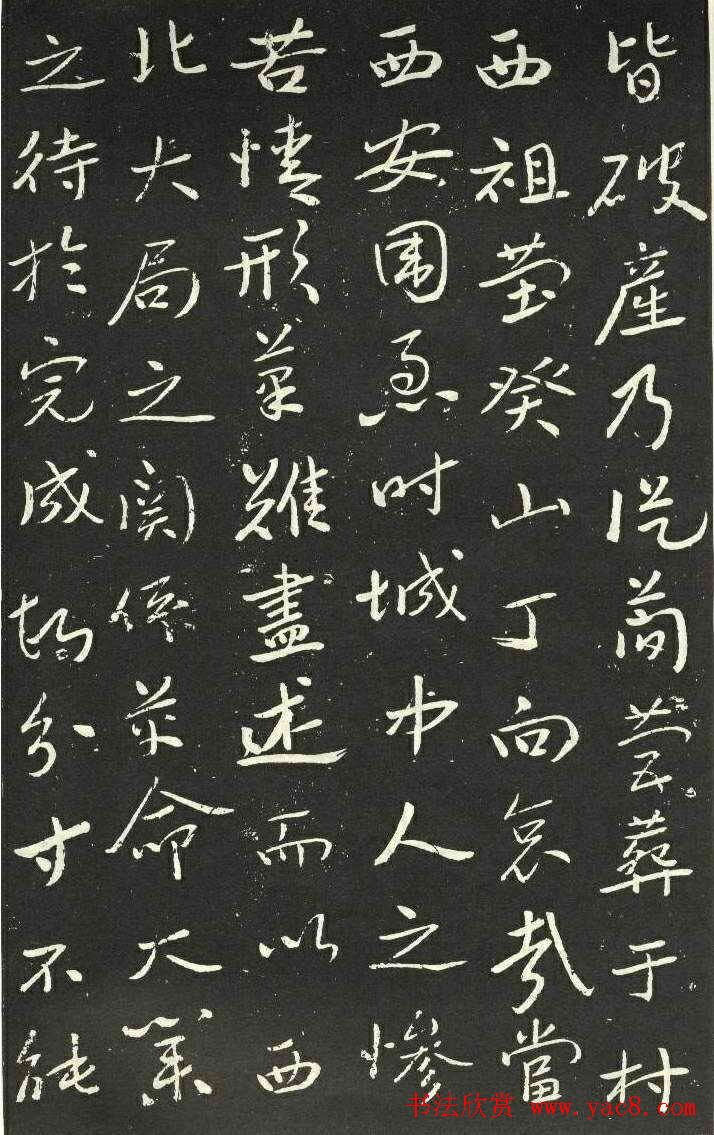 皆破產乃從简营葬于村
西祖茔癸山丁向哀哉當
西安围急时城中人之惨
苦情形筆難盡述而以西
北大局之関係革命大業
之待於完成分寸不能
书法欣赏 www.yac8.com